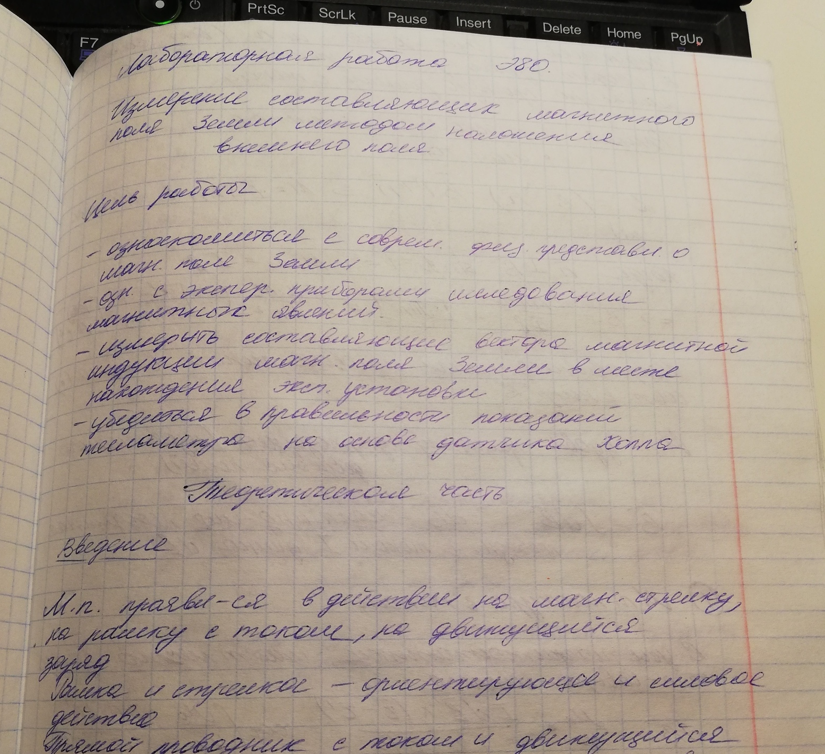 PrtSc
ScrLk
Pause
Insert
Delete
Home
PgUp
F7
Лабораторная работа Э80.
Измерение составляющих магнитного
поля Земли методом наложения
внешнего поля
Цель работы
- ознакомиться с соврем. физ. представл о
магн. поле Земли
- озн. с экспер. приборами исследования
магнитных явлений.
- измерить составляющие вектора магнитной
индукции магн. поля Земли в месте
нахождения эксп. установки
- убедиться в правильности показаний
тесламетра на основе датчика Холла
Теоретическая часть
Введение
М.п. проявл-ся в действии на магн. стрелку,
на рамку с током, на движущийся
заряд
Рамка и стрелка - ориентирующее и силовое
действие
Прямой проводник с током и движущийся